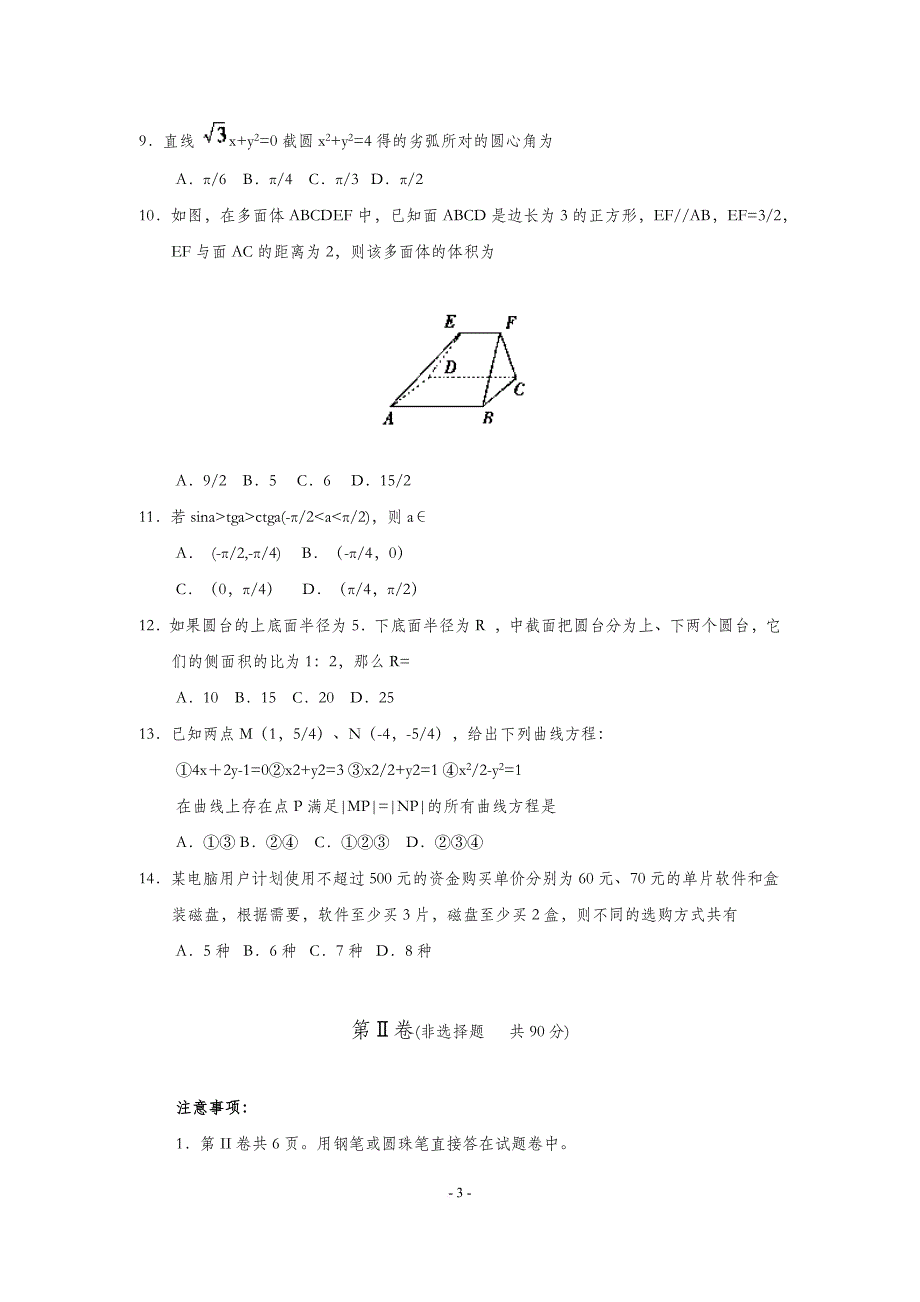 9．直线 √3x+y²=0 截圆 x²+y²=4 得的劣弧所对的圆心角为
A．π/6 B．π/4 C．π/3 D．π/2
10．如图，在多面体 ABCDEF 中，已知面 ABCD 是边长为 3 的正方形，EF//AB，EF=3/2，
EF 与面 AC 的距离为 2，则该多面体的体积为
E F
D
C
A B
A．9/2 B．5 C．6 D．15/2
11．若 sina>tga>ctga(-π/2<a<π/2)，则 a∈
A． (-π/2,-π/4) B．（-π/4，0）
C．（0，π/4） D．（π/4，π/2）
12．如果圆台的上底面半径为 5．下底面半径为 R ，中截面把圆台分为上、下两个圆台，它
们的侧面积的比为 1：2，那么 R=
A．10 B．15 C．20 D．25
13．已知两点 M（1，5/4）、N（-4，-5/4），给出下列曲线方程：
①4x＋2y-1=0②x2+y2=3 ③x2/2+y2=1 ④x²/2-y²=1
在曲线上存在点 P 满足|MP|=|NP|的所有曲线方程是
A．①③ B．②④ C．①②③ D．②③④
14．某电脑用户计划使用不超过 500 元的资金购买单价分别为 60 元、70 元的单片软件和盒
装磁盘，根据需要，软件至少买 3 片，磁盘至少买 2 盒，则不同的选购方式共有
A．5 种 B．6 种 C．7 种 D．8 种
第Ⅱ卷(非选择题 共 90 分)
注意事项：
1．第 II 卷共 6 页。用钢笔或圆珠笔直接答在试题卷中。
- 3 -